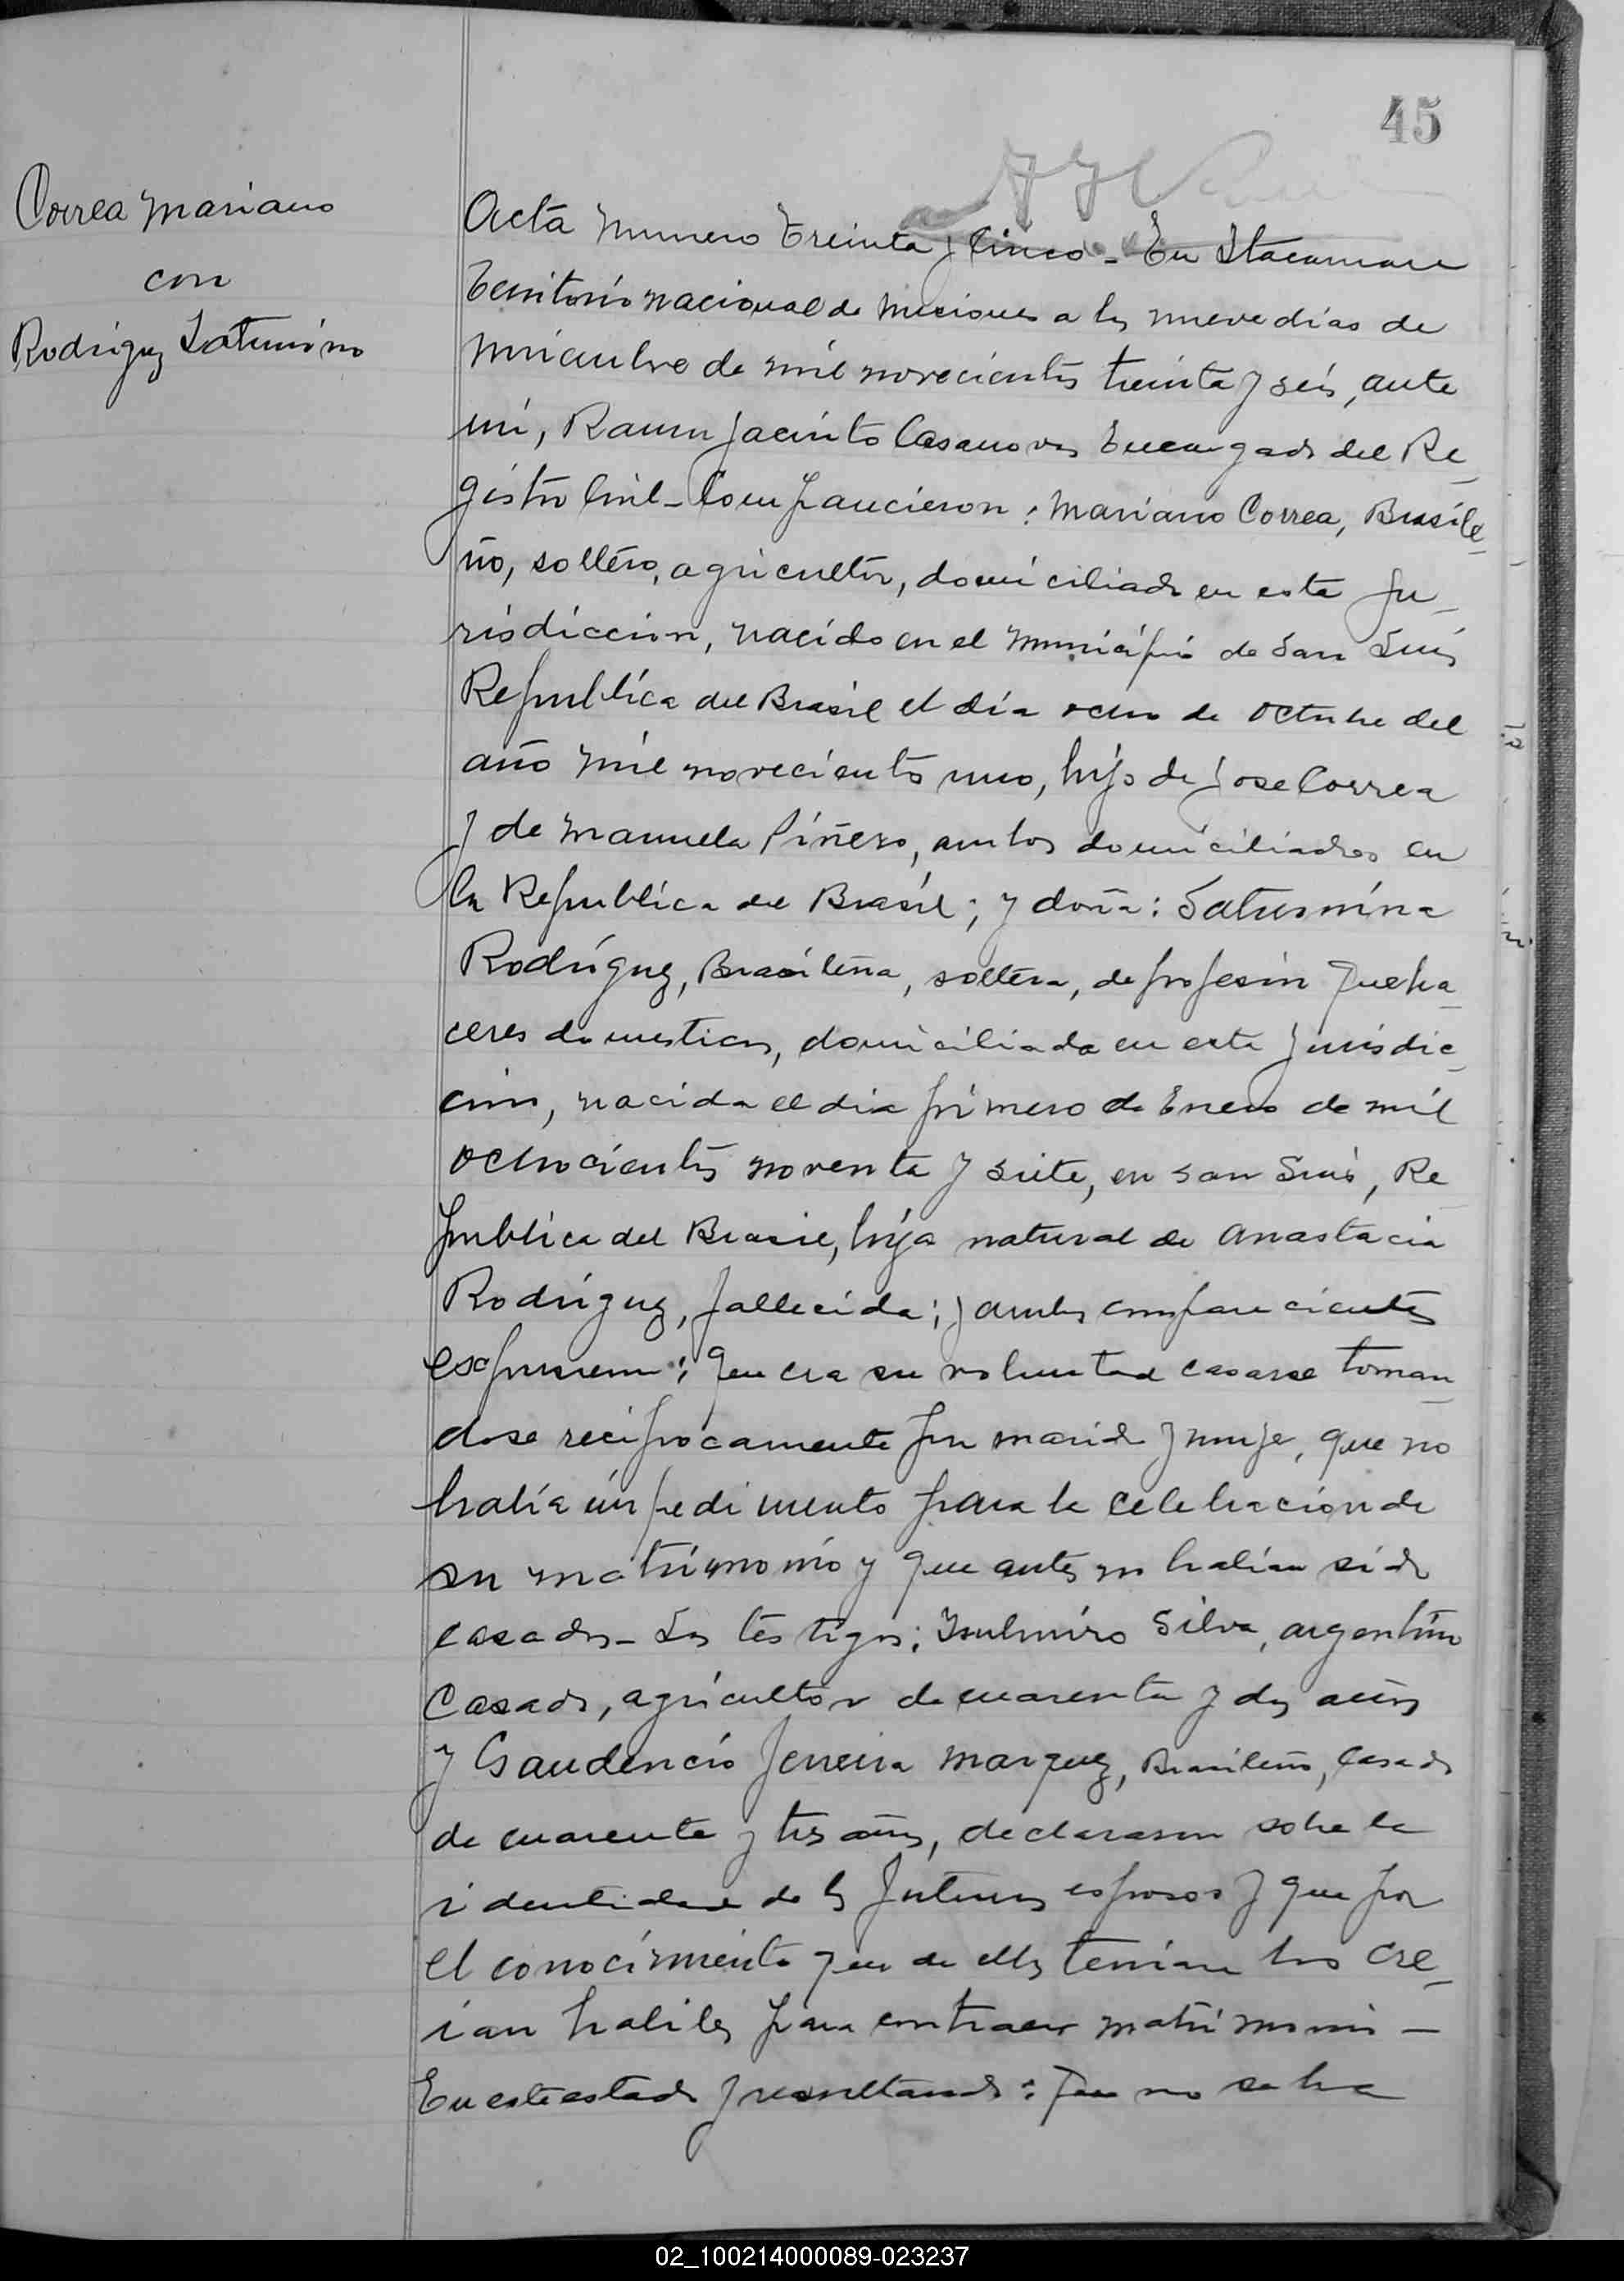 45
Correa Mariano
con
Rodriguez Saturnino
Acta Numero Treinta y Cinco - En Itacaruare
Territorio nacional de Misiones a los nueve dias de
Noviembre de mil novecientos treinta y seis, ante
mi, Ramon Jacinto Casanovas Encargado del Re_
gistro Civil - Comparecieron: Mariano Correa, Brasile_
ño, soltero, agricultor, domiciliado en esta Ju_
risdiccion, nacido en el Municipio de San Luis
Republica del Brasil el día ocho de octubre del
año mil novecientos uno, hijo de Jose Correa
y de Manuela Piñero, ambos domiciliados en
la Republica del Brasil; y doña: Saturnina
Rodriguez, Brasileña, soltera, de profesion Queha_
ceres domesticos, domiciliada en esta Jurisdic_
cion, nacida el dia primero de Enero de mil
ochocientos noventa y siete, en San Luis, Re_
publica del Brasil, hija natural de Anastacia
Rodriguez, fallecida; y ambos comparecientes
expusieron: Que era su voluntad casarse toman_
dose reciprocamente por marido y mujer, que no
habia impedimento para la celebracion de
su matrimonio y que antes no habian sido
casados - Los testigos: Silva, argentino
Casado, agricultor de cuarenta y dos años
y Gaudencio Ferreira Marquez, Brasileño, Casado
de cuarenta y tres años, declararon sobre la
identidad de los futuros esposos y que por
el conocimiento que de ellos tenian los cre_
ian habiles para contraer matrimonio -
En este estado y resultando: Que no se ha
02_100214000089-023237